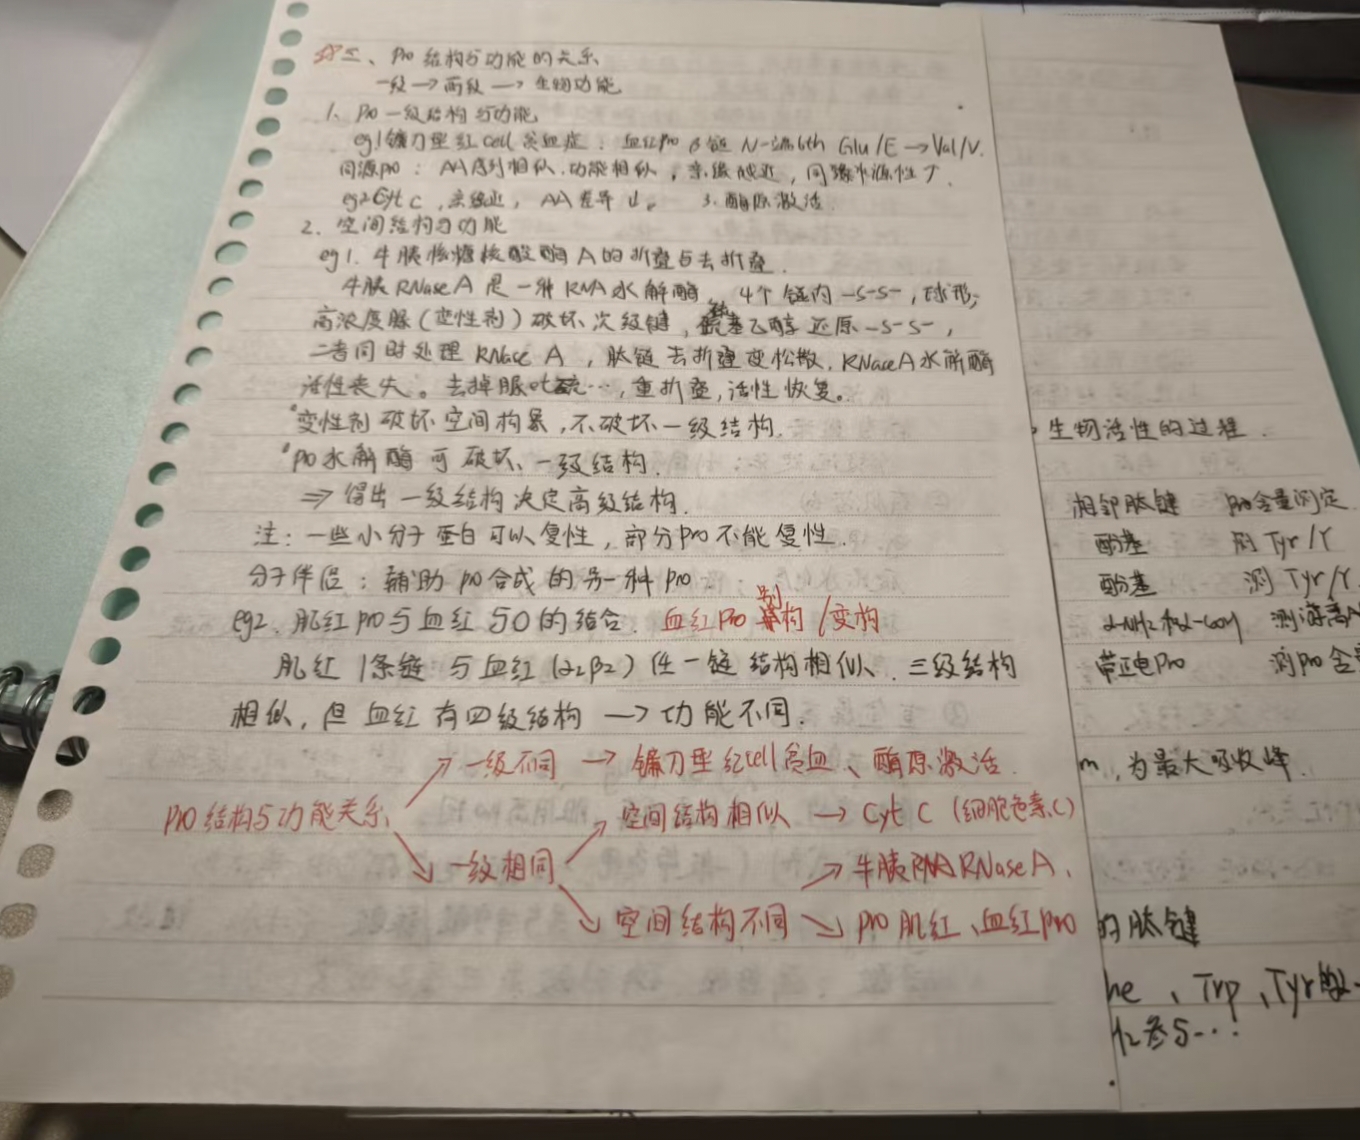 三、pro 结构与功能的关系
一级 → 高级 → 生物功能
1、pro 一级结构与功能
eg1 镰刀型红cell贫血症：血红pro β链 N-端6th Glu/E → Val/V.
同源pro：AA序列相似.功能相似，亲缘越近，同源性↑.
eg2 Cyt C，亲缘近，AA差异↓。 3. 酶原激活.
2、空间结构与功能
eg1. 牛胰核糖核酸酶A的折叠与去折叠.
牛胰 RNase A 是一种 RNA 水解酶，4个链内 -S-S-，球形;
高浓度脲(变性剂)破坏次级键，巯基乙醇还原 -S-S-，
二者同时处理 RNase A，肽链去折叠变松散，RNase A水解酶
活性丧失。去掉脲 巯…，重折叠，活性恢复。
变性剂破坏空间构象，不破坏一级结构.
pro水解酶可破坏、一级结构.
⇒ 得出一级结构决定高级结构.
注：一些小分子蛋白可以复性，部分pro不能复性.
分子伴侣：辅助pro合成的另一种pro.
eg2. 肌红pro与血红与O的结合. 血红pro 别构/变构
肌红1条链与血红(α₂β₂)任一链结构相似. 三级结构
相似，但血红有四级结构 → 功能不同.
一级不同 → 镰刀型红cell贫血、酶原激活.
pro结构与功能关系
空间结构相似 → Cyt C (细胞色素C)
一级相同
牛胰 RNase A.
空间结构不同
pro肌红、血红pro
生物活性的过程.
相邻肽键 pro含量测定.
酚基 测 Tyr/Y
酚基 测 Tyr/Y
α-NH₂和α-COOH 测游离A
带正电pro 测pro含量
m，为最大吸收峰.
的肽键
he、Trp、Tyr
参与…!